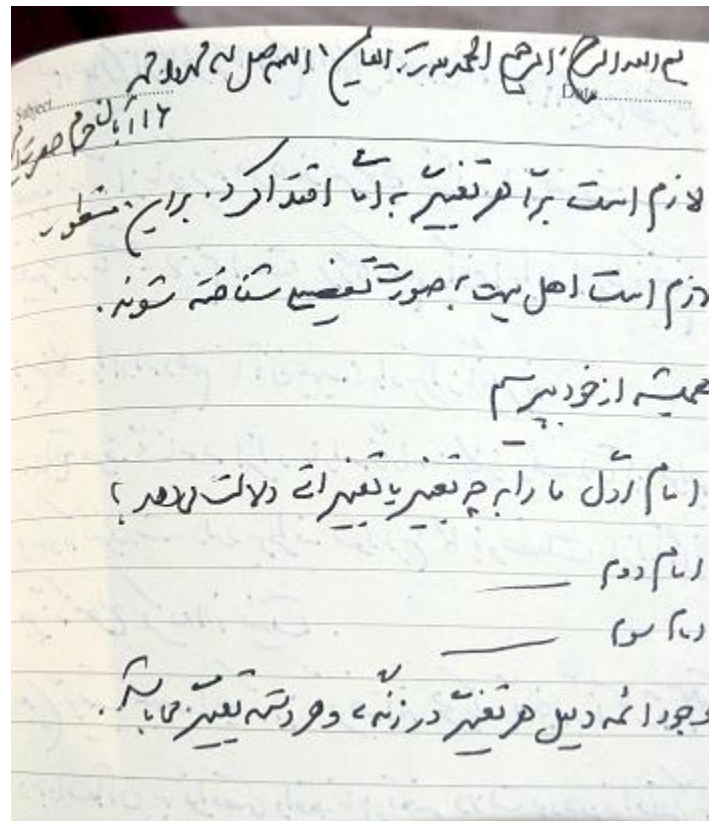 بسم الله الرحمن الرحیم الحمدلله رب العالمین اللهم صل علی محمد و آل محمد
Subject
Date
۱۱۶ آبان حرم
لازم است برای هر تغییری به امامی اقتدا کرد. برای این منظور
لازم است اهل بیت به صورت تفصیلی شناخته شوند.
همیشه از خود بپرسیم
امام اوّل ما را به چه تغییر یا تغییراتی دلالت می‌دهد؟
امام دوم
امام سوم
وجود ائمه دلیل هر تغییری در زندگی و هر دسته تغییر می‌باشد.